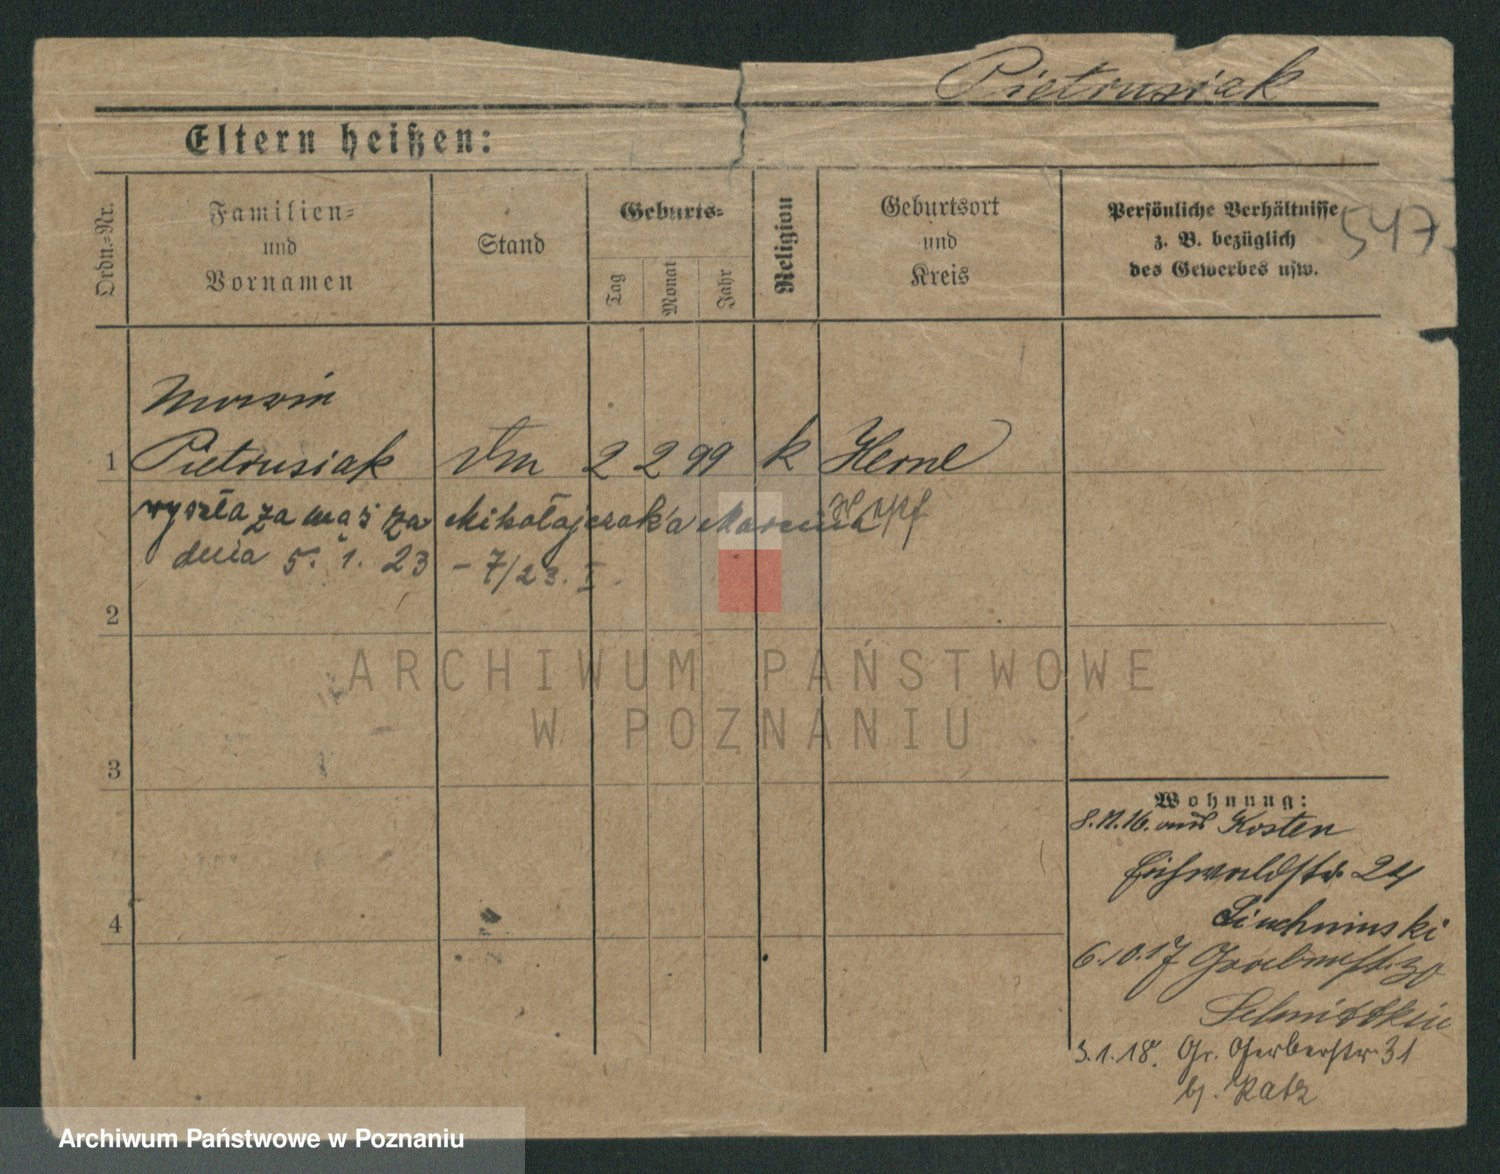 Pietrusiak
Eltern heißen:
Ordn.-Nr.
Familien-
und
Vornamen
Stand
Geburts-
Tag
Monat
Jahr
Religion
Geburtsort
und
Kreis
Persönliche Verhältnisse
z. B. bezüglich
des Gewerbes usw.
547
1 Pietrusiak 2 2 99 k Herne
wyszła za mąż za Mikołajczaka Marcina
dnia 5. 1. 23 – 7/23. I.
2
3
4
Wohnung:
8.11.16. aus Kosten
Eichwaldstr. 24
6.10.17 Grabenstr. 30
3.1.18. Gr. Gerberstr 31
b. Katz
ARCHIWUM PAŃSTWOWE
W POZNANIU
Archiwum Państwowe w Poznaniu